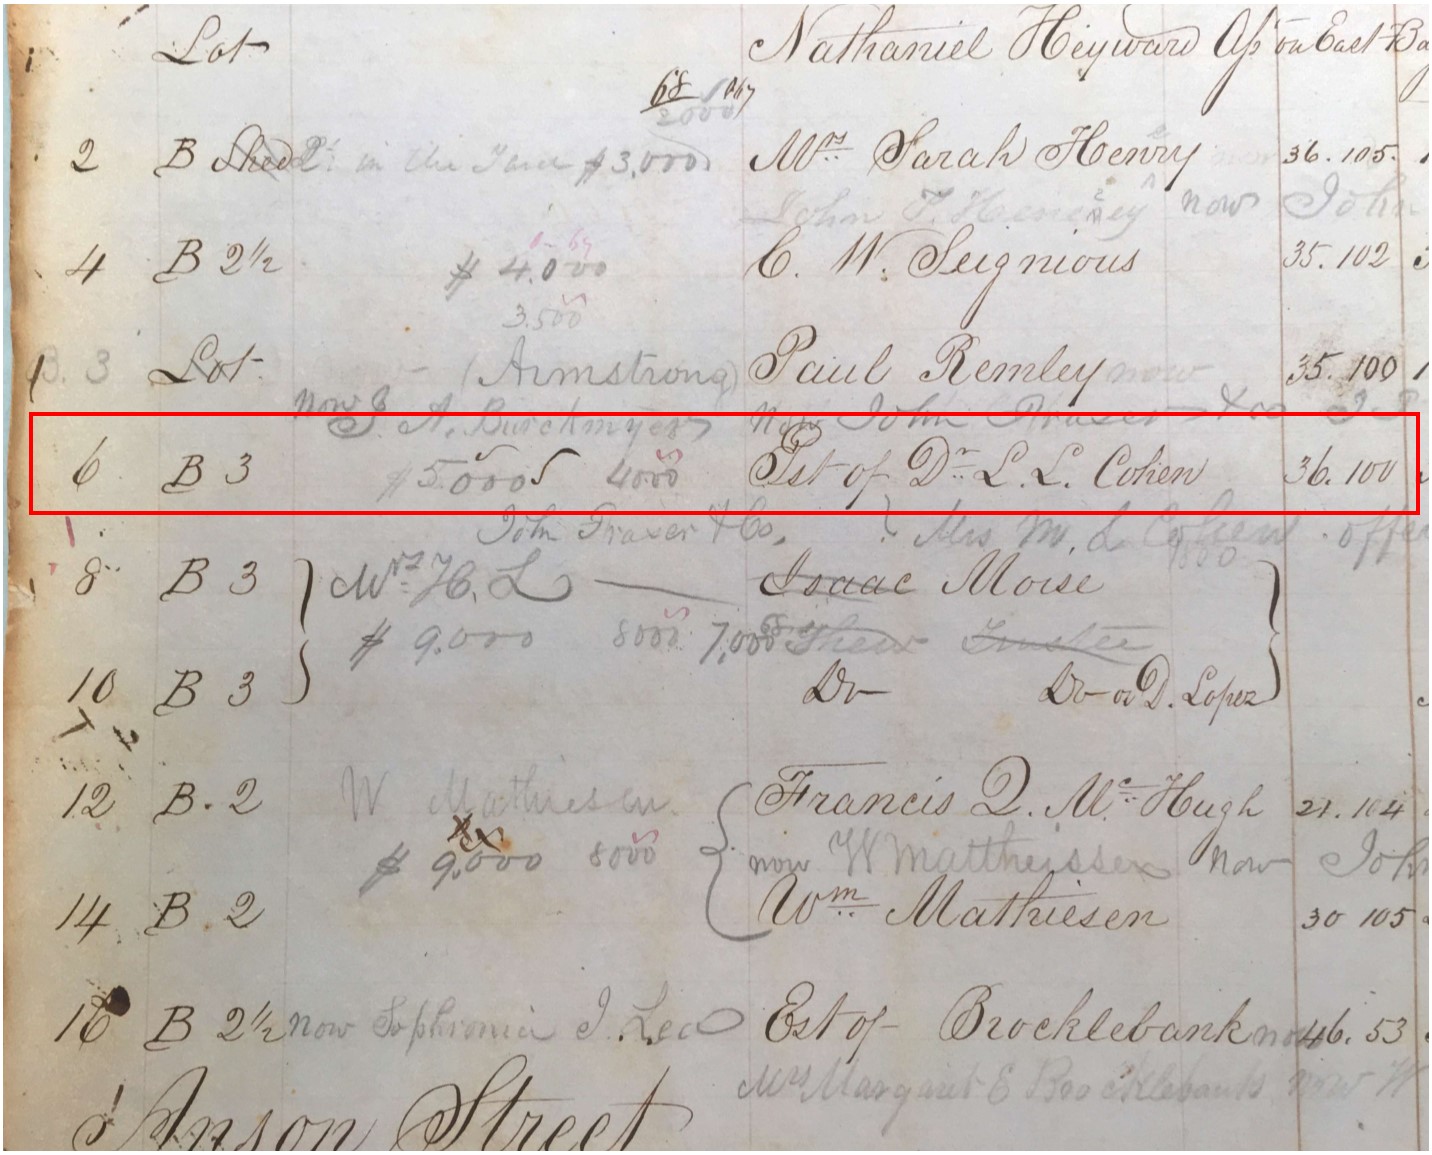 Lot Nathaniel Heyward on East Ba
68
2000
2 B Shed in the Yard $3,000 Mrs Sarah Henry 36.105.
John now John
4 B 2½ $ 4.000 C. W. Seignious 35.102
3.500
B. 3 Lot (Armstrong) Paul Remley now 35.100
now A. Burckmyer now John Fraser & Co
6 B 3 $5.000 4000 Est of Dr L. L. Cohen 36.100
John Fraser & Co. Mrs M. L Cohen offe
8 B 3 Mrs H. L Isaac Moise
$ 9.000 8000 7,000 Trustee
10 B 3 Do Do or D. Lopez
12 B. 2 W Mathiesen Francis Q. McHugh 21.104
$ 9.000 8000 now W Mattheissen now John
14 B 2 Wm Mathiesen 30 105
16 B 2½ now Sophronia I. Lea Est of Brocklebank now 46.53
Mrs Margaret E Brocklebank now W
Anson Street